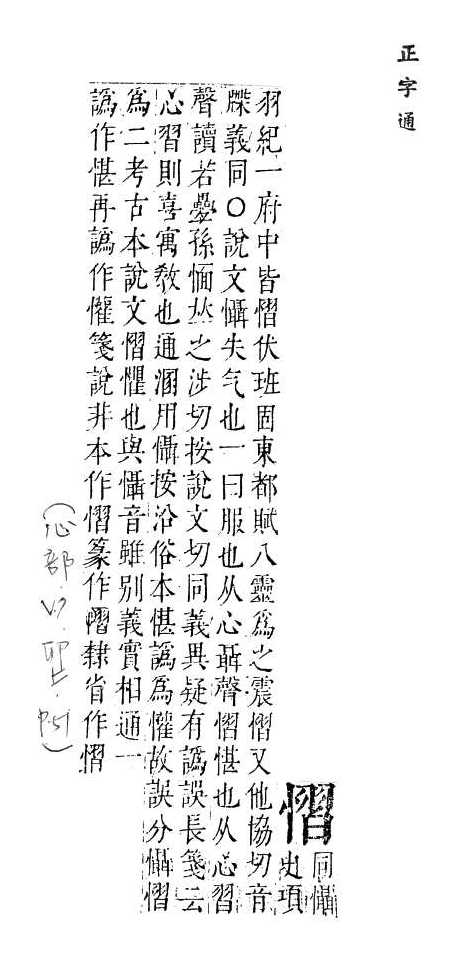 正字通
慴
同懾
史項
羽紀一府中皆慴伏班固東都賦八靈爲之震慴又他協切音
牒義同〇說文懾失气也一曰服也从心聶聲慴愖也从心習
聲讀若疊孫愐𠀤之涉切按說文切同義異疑有譌誤長箋云
心習則喜寓敎也通溷用懾按沿俗本愖譌爲懽故誤分懾慴
爲二考古本說文慴懼也與懾音雖别義實相通一
譌作愖再譌作懽箋說非本作慴篆作慴隸省作慴
(心部 P.51)